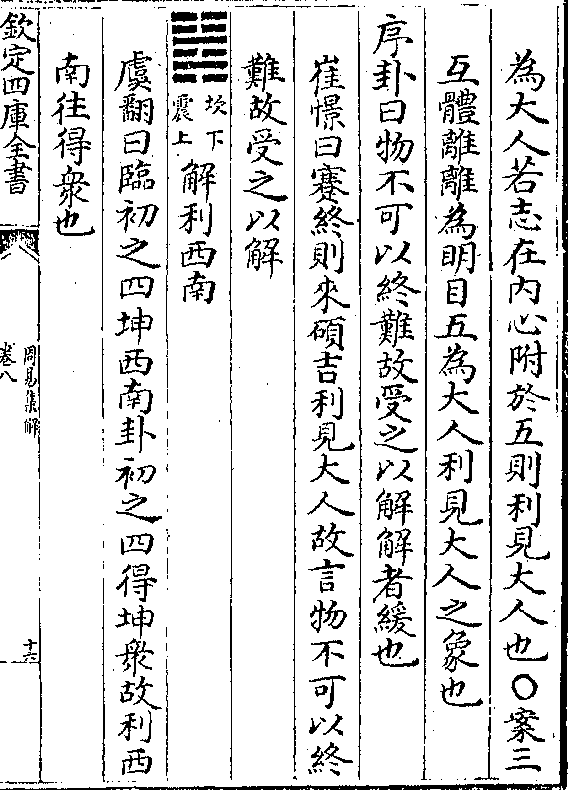 為大人若志在内心附於五則利見大人也○案三
互體離離為明目五為大人利見大人之象也
序卦曰物不可以終難故受之以解解者緩也
崔憬曰蹇終則來碩吉利見大人故言物不可以終
難故受之以解
坎下
震上
解利西南
虞翻曰臨初之四坤西南卦初之四得坤衆故利西
南往得衆也
欽定四庫全書
周易集解
卷八
十六